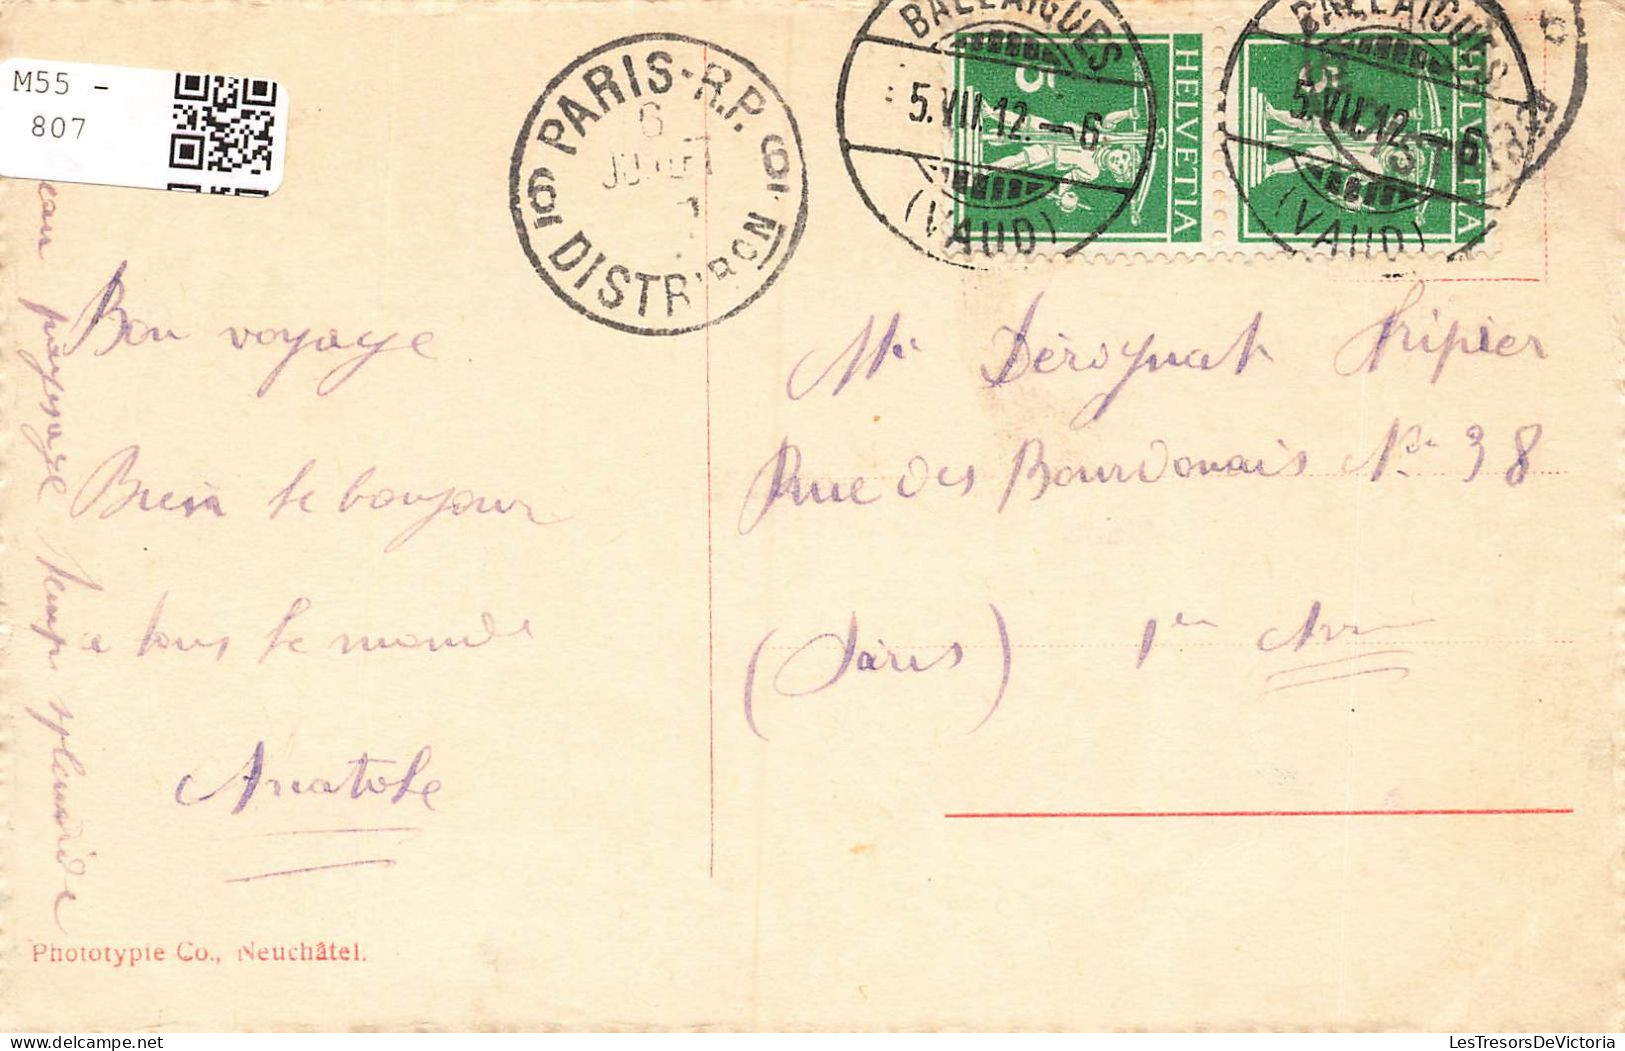 M55 -
807
PARIS-R.P.
6
DISTRIBON
6 6
BALLAIGUES
5.VII.12.-6
(VAUD)
HELVETIA
5
BALLAIGUES
5.VII.12.-6
(VAUD)
HELVETIA
Bon voyage
Bien le bonjour
a tous le monde
Anatole
paysage temp splendide
Rue des Bourdonnais No 38
(Paris) 1er Arr
Phototypie Co., Neuchâtel.
LesTresorsDeVictoria